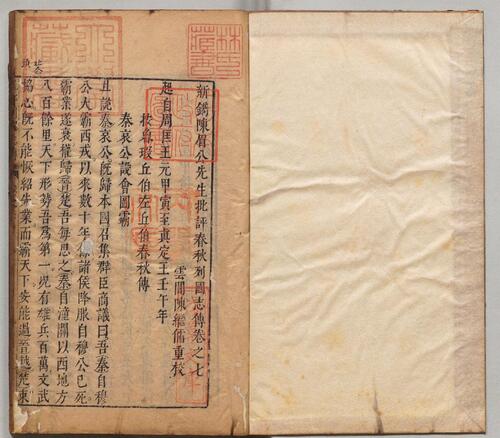 新鐫陳眉公先生批評春秋列國志傳卷之七
雲間陳繼儒重校
起自周匡王元甲寅至真定王壬午年
按魯瑕丘伯左丘眀春秋傳
秦哀公設會圖霸
且說秦哀公旣歸本國召集群臣商議曰吾秦自穆
公大霸西戎以來數十年傳諸侯降服自穆公已死
霸業遂衰權歸晉楚吾每思之秦自潼關以西地方
八百餘里天下形勢吾爲第一兼有雄兵百萬文武
協心旣不能恢紹先業而霸天下安能過晉越楚東